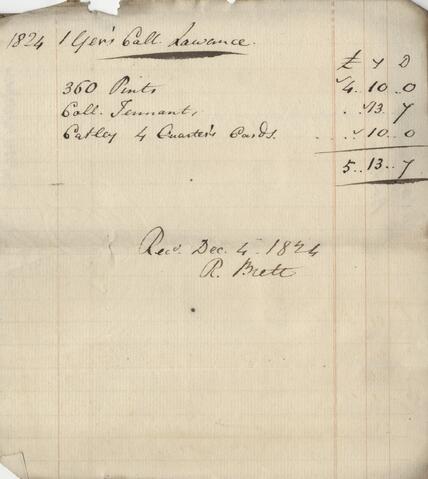 1824 1 Yer's Coll. Lawance.
£ S D
360 Pints 4..10..0
Coll. Tennant, . . 13. 7
Catley 4 Quarter's Cards. . . . . 10..0
5..13..7
Recd. Dec. 4. 1824
R. Brett